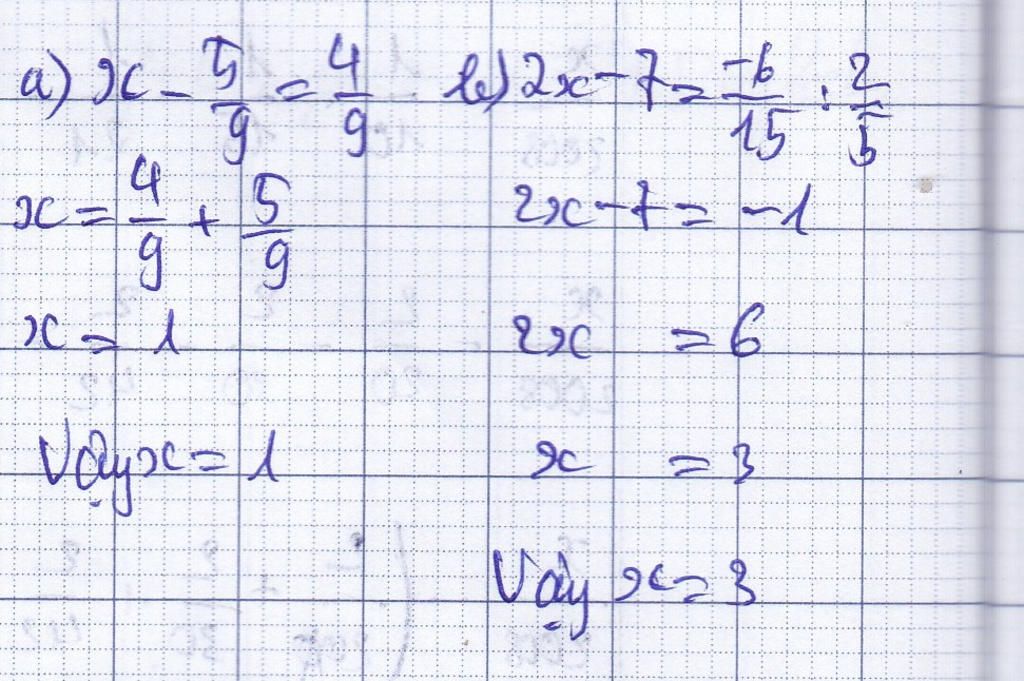 a) x - 5/9 = 4/9
x = 4/9 + 5/9
x = 1
Vậy x = 1
b) 2x - 7 = -6/15 : 2/5
2x - 7 = -1
2x = 6
x = 3
Vậy x = 3